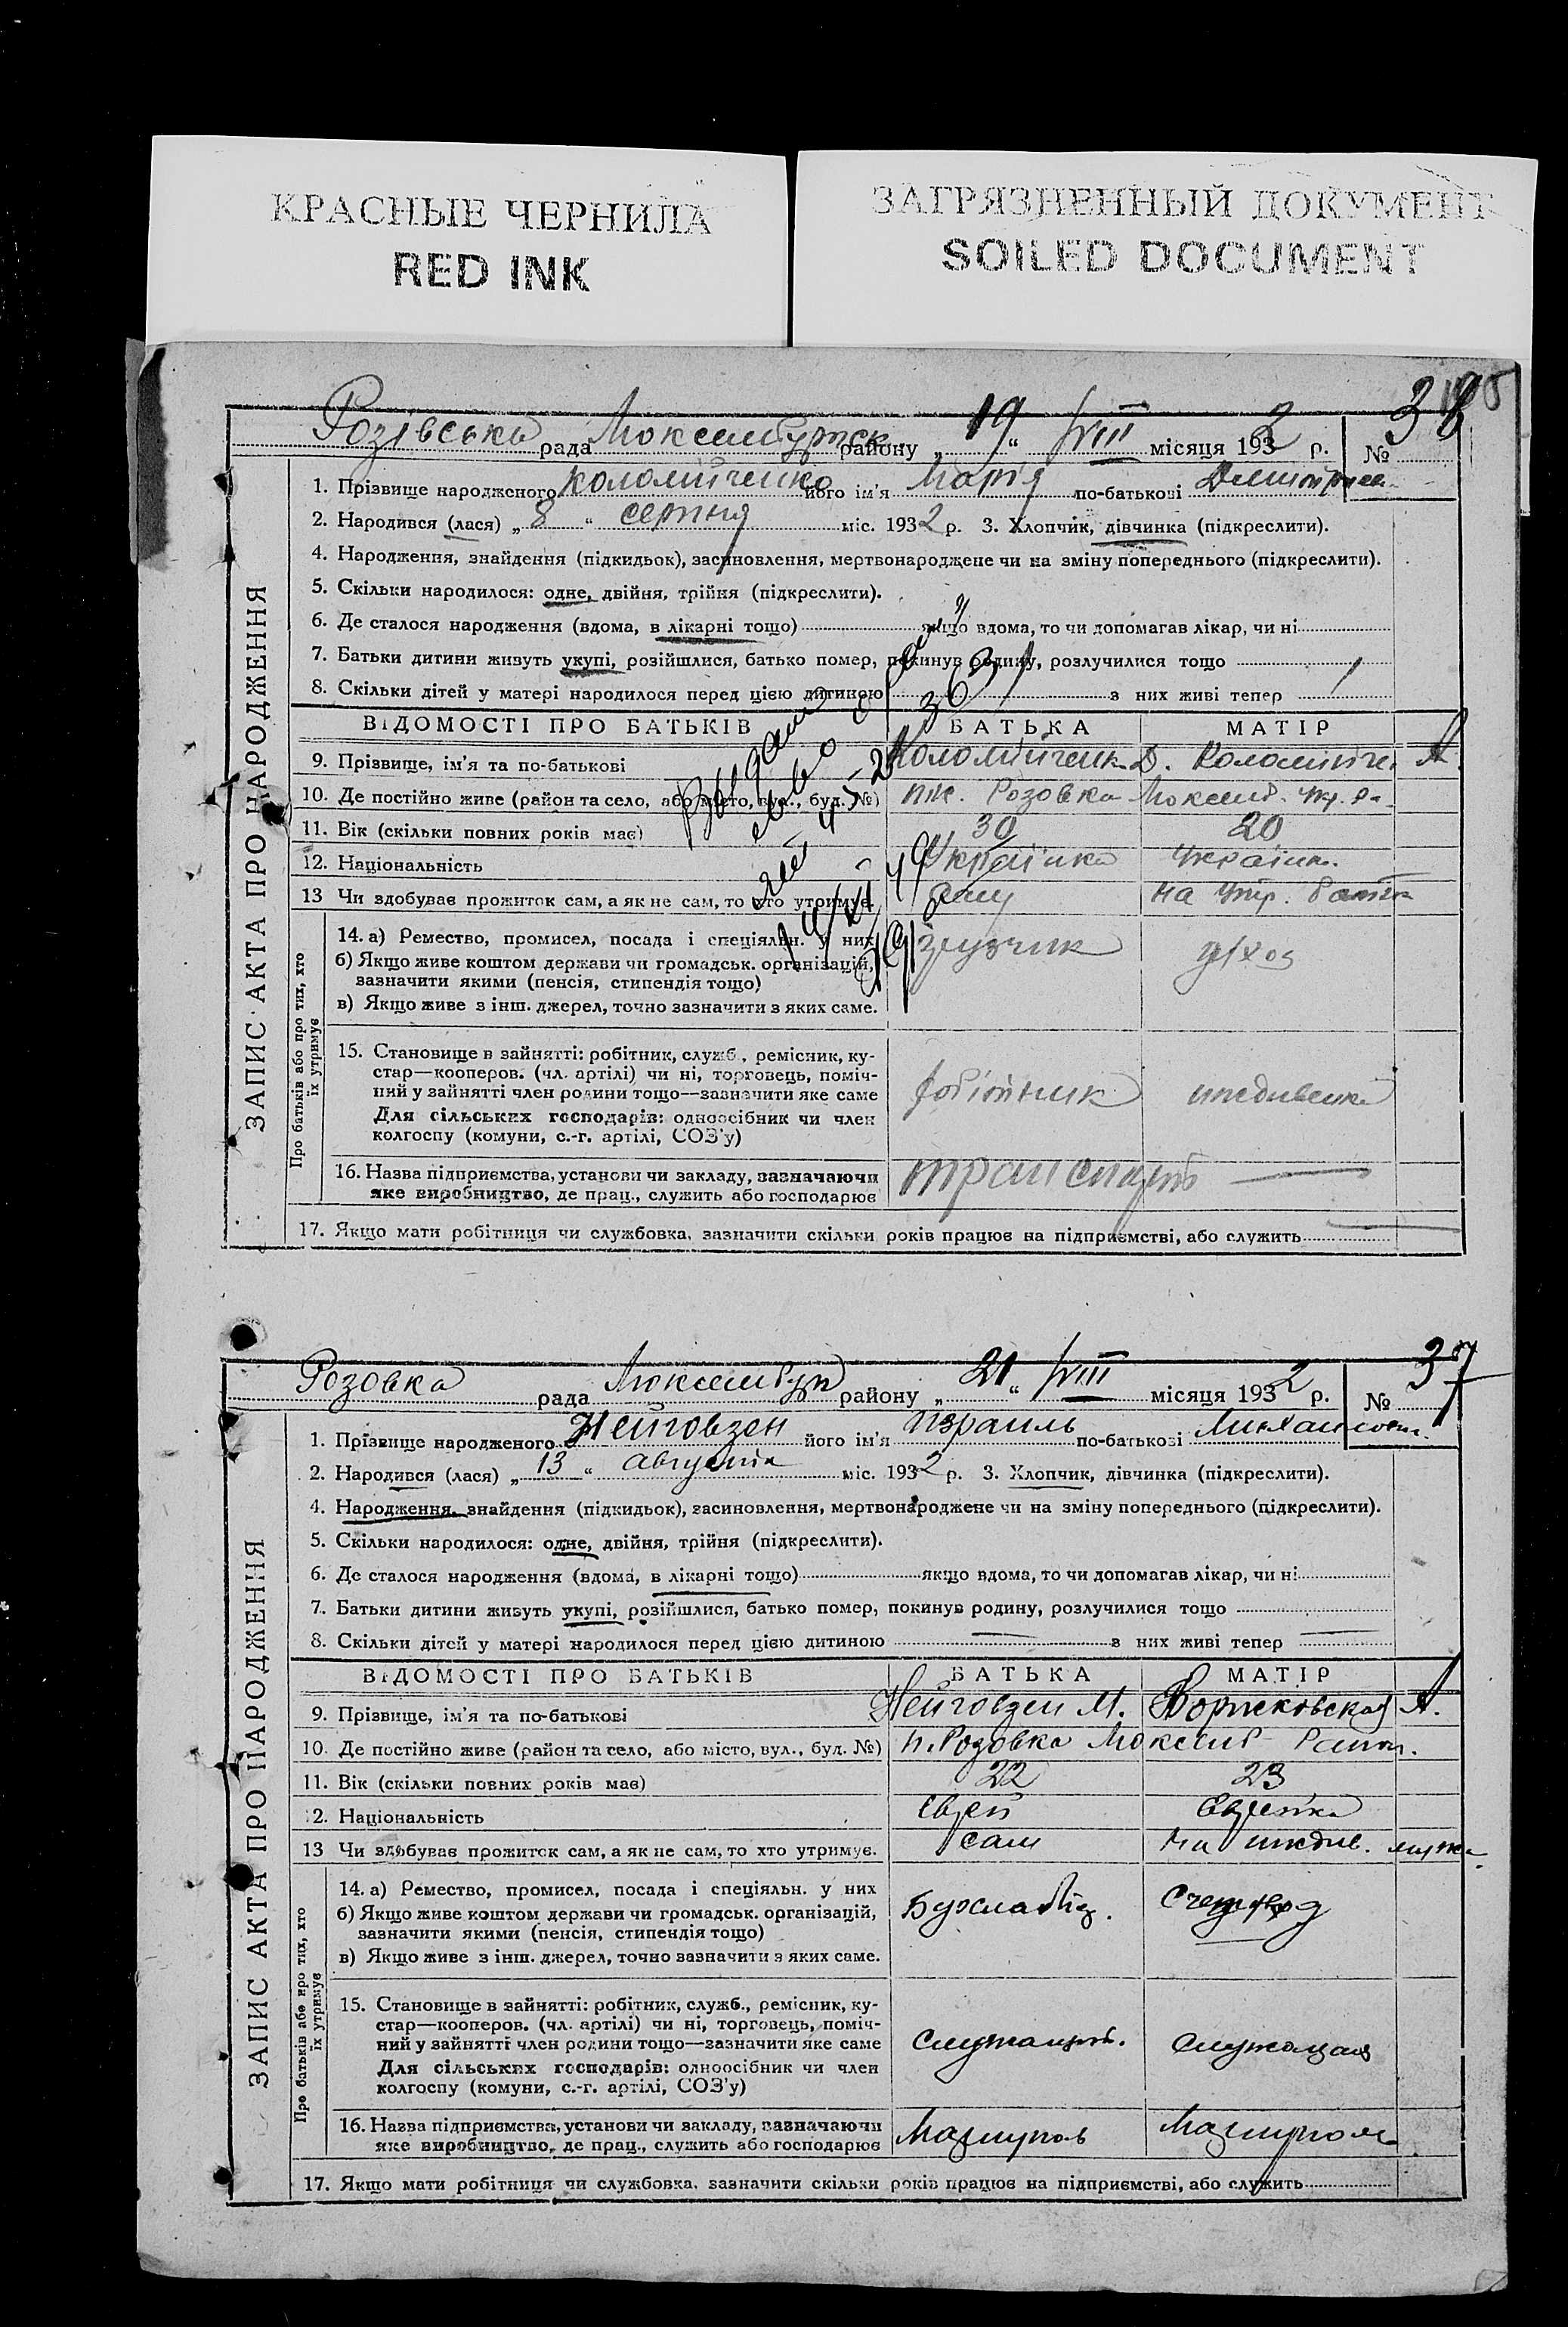 КРАСНЫЕ ЧЕРНИЛА
RED INK
ЗАГРЯЗНЕННЫЙ ДОКУМЕНТ
SOILED DOCUMENT
Розівська рада Люксембургск. району „ 19 “ VIII місяця 1932 р. №
ЗАПИС АКТА ПРО НАРОДЖЕННЯ
1. Прізвище народженого Коломійченко його ім'я Марія по-батькові
2. Народився (лася) „ 8 “ серпня міс. 1932 р. 3. Хлопчик, дівчинка (підкреслити).
4. Народження, знайдення (підкидьок), засиновлення, мертвонароджене чи на зміну попереднього (підкреслити).
5. Скільки народилося: одне, двійня, трійня (підкреслити).
6. Де сталося народження (вдома, в лікарні тощо) якщо вдома, то чи допомагав лікар, чи ні
7. Батьки дитини живуть укупі, розійшлися, батько помер, покинув родину, розлучилися тощо
8. Скільки дітей у матері народилося перед цією дитиною з них живі тепер 1
ВІДОМОСТІ ПРО БАТЬКІВ БАТЬКА МАТІР
9. Прізвище, ім'я та по-батькові Коломийченк. Д. Коломийче. А.
10. Де постійно живе (район та село, або місто, вул., буд. №) Розовка Люксемб.
11. Вік (скільки повних років має) 30 20
12. Національність Українка Україн.
13 Чи здобуває прожиток сам, а як не сам, то хто утримує. на утр. батька
Про батьків або про тих, хто їх утримує
14. а) Ремество, промисел, посада і спеціяльн. у них грузчик д/хоз
б) Якщо живе коштом держави чи громадськ. організацій,
зазначити якими (пенсія, стипендія тощо)
в) Якщо живе з інш. джерел, точно зазначити з яких саме.
15. Становище в зайнятті: робітник, служб., ремісник, ку-
стар—кооперов. (чл. артілі) чи ні, торговець, поміч-
ний у зайнятті член родини тощо—зазначити яке саме робітник иждивенка
Для сільських господарів: одноосібник чи член
колгоспу (комуни, с.-г. артілі, СОЗ'у)
16. Назва підприємства, установи чи закладу, зазначаючи транспорт
яке виробництво, де прац., служить або господарює
17. Якщо мати робітниця чи службовка, зазначити скільки років працює на підприємстві, або служить
Розовка рада Люксембур району „ 21 “ VIII місяця 1932 р. № 37
ЗАПИС АКТА ПРО НАРОДЖЕННЯ
1. Прізвище народженого Нейговзен його ім'я Израиль по-батькові
2. Народився (лася) „ 13 “ августа міс. 1932 р. 3. Хлопчик, дівчинка (підкреслити).
4. Народження, знайдення (підкидьок), засиновлення, мертвонароджене чи на зміну попереднього (підкреслити).
5. Скільки народилося: одне, двійня, трійня (підкреслити).
6. Де сталося народження (вдома, в лікарні тощо) якщо вдома, то чи допомагав лікар, чи ні
7. Батьки дитини живуть укупі, розійшлися, батько помер, покинув родину, розлучилися тощо
8. Скільки дітей у матері народилося перед цією дитиною — з них живі тепер —
ВІДОМОСТІ ПРО БАТЬКІВ БАТЬКА МАТІР
9. Прізвище, ім'я та по-батькові Нейговзен М. А.
10. Де постійно живе (район та село, або місто, вул., буд. №) п. Розовка Люксемб Район.
11. Вік (скільки повних років має) 22 23
12. Національність Еврей Еврейка
13 Чи здобуває прожиток сам, а як не сам, то хто утримує. сам на иждив. мужа
Про батьків або про тих, хто їх утримує
14. а) Ремество, промисел, посада і спеціяльн. у них Счетовод
б) Якщо живе коштом держави чи громадськ. організацій,
зазначити якими (пенсія, стипендія тощо)
в) Якщо живе з інш. джерел, точно зазначити з яких саме.
15. Становище в зайнятті: робітник, служб., ремісник, ку-
стар—кооперов. (чл. артілі) чи ні, торговець, поміч-
ний у зайнятті член родини тощо—зазначити яке саме служащий. служащая
Для сільських господарів: одноосібник чи член
колгоспу (комуни, с.-г. артілі, СОЗ'у)
16. Назва підприємства, установи чи закладу, зазначаючи
яке виробництво, де прац., служить або господарює
17. Якщо мати робітниця чи службовка, зазначити скільки років працює на підприємстві, або служить